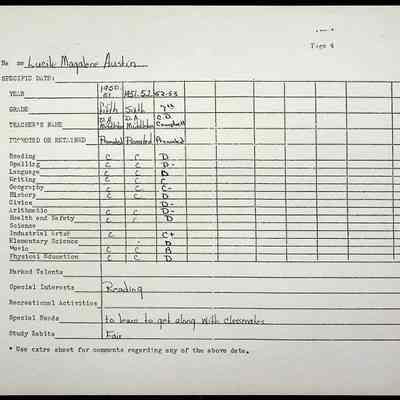 Page 4
Name Lucile Magalene Austin
SPECIFIC DATE:
YEAR 1950-51 1951-52 52-53
GRADE fifth Sixth 7th
TEACHER'S NAME D.A. Middleton D.A. Middleton C.D. Campbell
PROMOTED OR RETAINED Promoted Promoted Promoted
Reading C C D
Spelling C C D-
Language C C D
Writing C C C
Geography C C C-
History C C D
Civics D-
Arithmetic C C D-
Health and Safety C C D
Science
Industrial Arts# C C+
Elementary Science D
Music C C B
Physical Education C C D
Marked Talents
Special Interests Reading
Recreational Activities
Special Needs to learn to get along with classmates
Study Habits Fair
* Use extra sheet for comments regarding any of the above data.